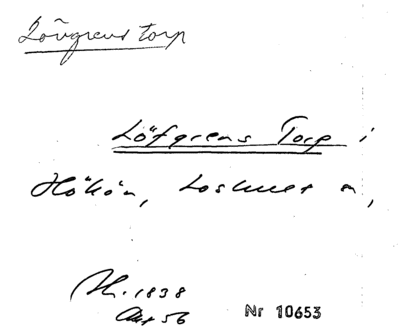 Lövgrens torp
Löfgrens Torp i
Hökön, Loshult sn,
Ak. 1838
Akt 56
Nr 10653